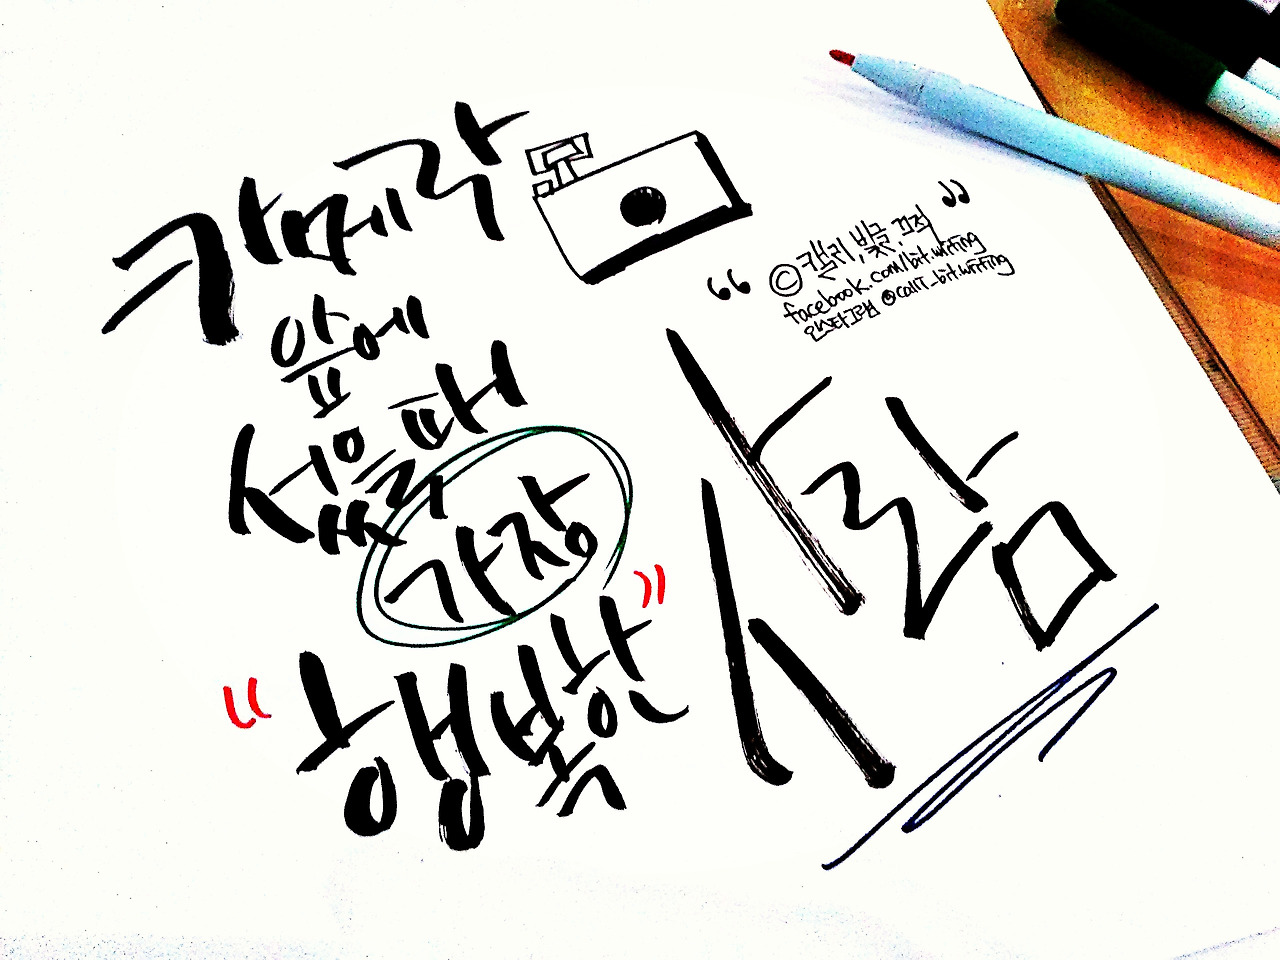 카메라
앞에
섰을때
가장
"행복한"
사람
"©캘리,빛글,끄적"
facebook.com/bit.writing
인스타그램 @calli_bit.writing